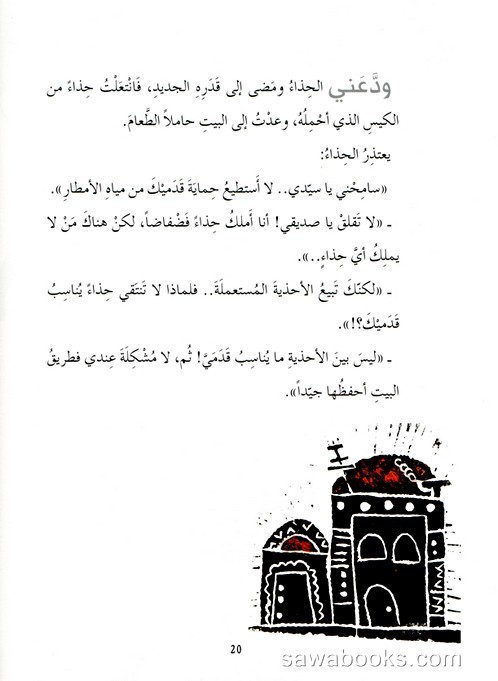 ودَّعَني الحِذاءُ ومَضى إلى قَدَرِهِ الجديدِ، فَانْتعَلْتُ حِذاءً من
الكيسِ الذي أحْمِلُهُ، وعدْتُ إلى البيتِ حاملاً الطَّعامَ.
يعتذِرُ الحِذاءُ:
«سامِحْني يا سيِّدي.. لا أَستطيعُ حِمايَةَ قَدَميْكَ من مياهِ الأمطارِ».
ـ «لا تَقلقْ يا صديقي! أنا أَملكُ حِذاءً فَضْفاضاً، لكنْ هناكَ مَنْ لا
يملِكُ أيَّ حِذاءٍ..».
ـ «لكنّكَ تَبيعُ الأحذيةَ المُستعملَةَ.. فلماذا لا تَنتَقي حِذاءً يُناسِبُ
قَدَميْكَ؟!».
ـ «ليسَ بينَ الأحذيةِ ما يُناسِبُ قَدَمَيَّ! ثُم، لا مُشْكِلَةَ عِندي فطريقُ
البيتِ أحفظُها جيّداً».
20
sawabooks.com